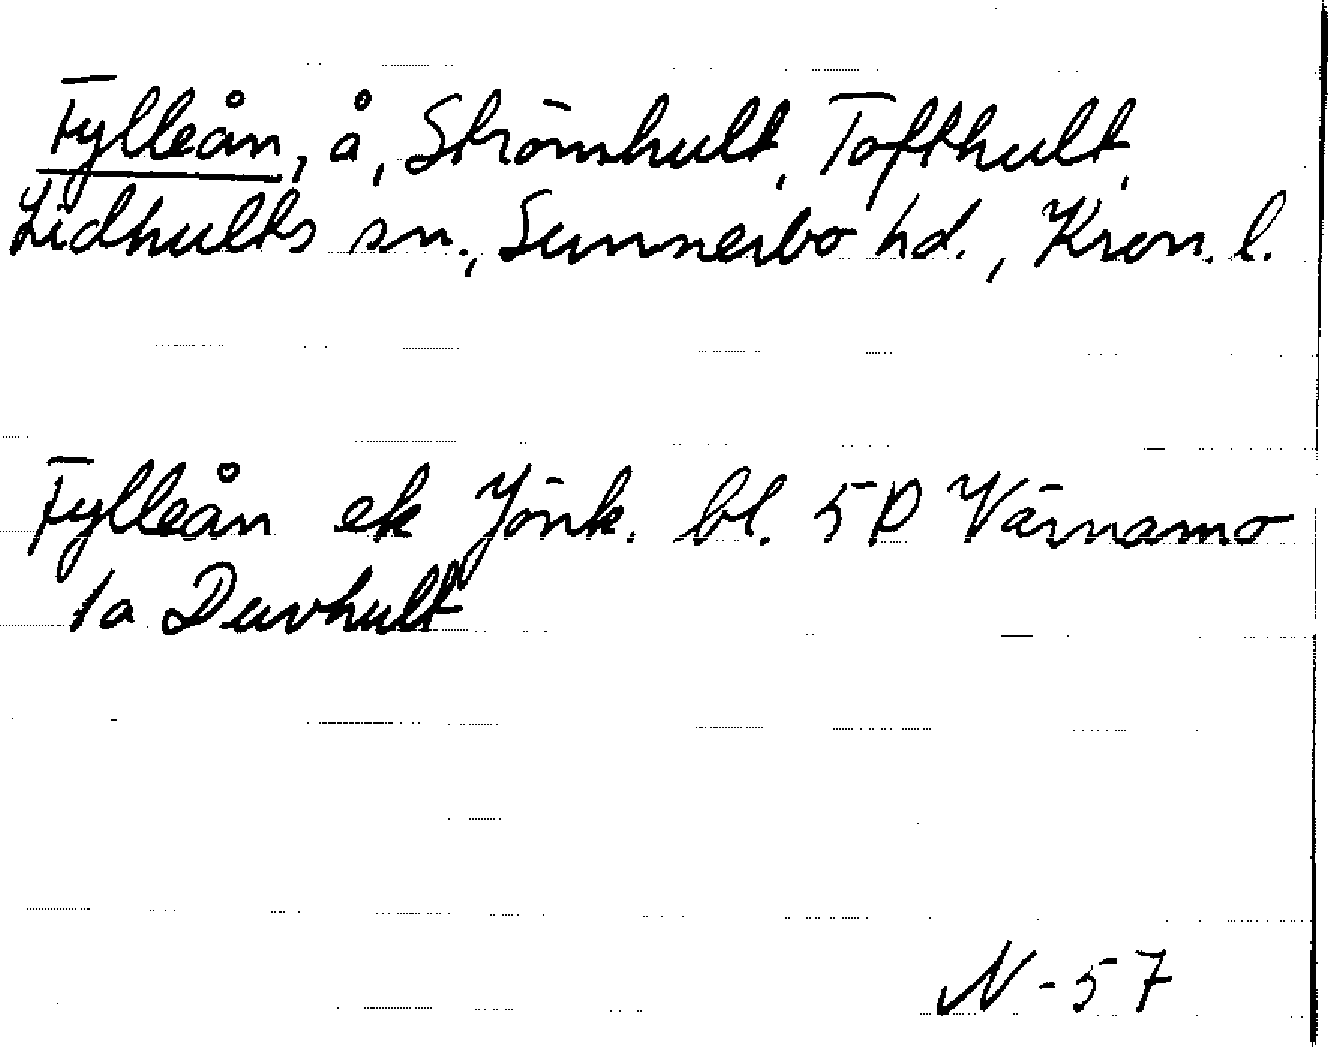 Fylleån, å, Strömhult, Tofthult,
Lidhults sn., Sunnerbo hd., Kron. l.
Fylleån ek Jönk. bl. 5D Värnamo
1a Duvhult
N-57